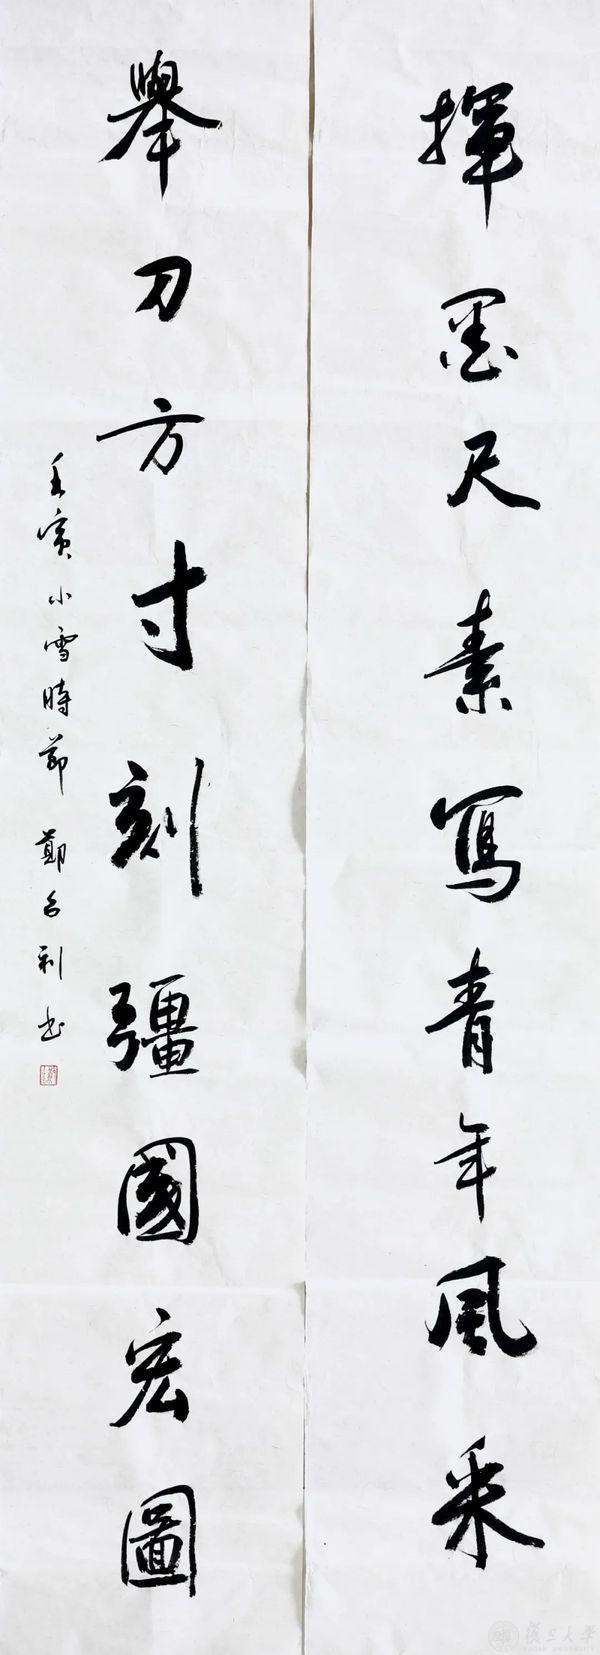 揮墨尺素寫青年風采
舉刀方寸刻彊國宏圖
壬寅小雪時節 鄭名利书
復旦大學